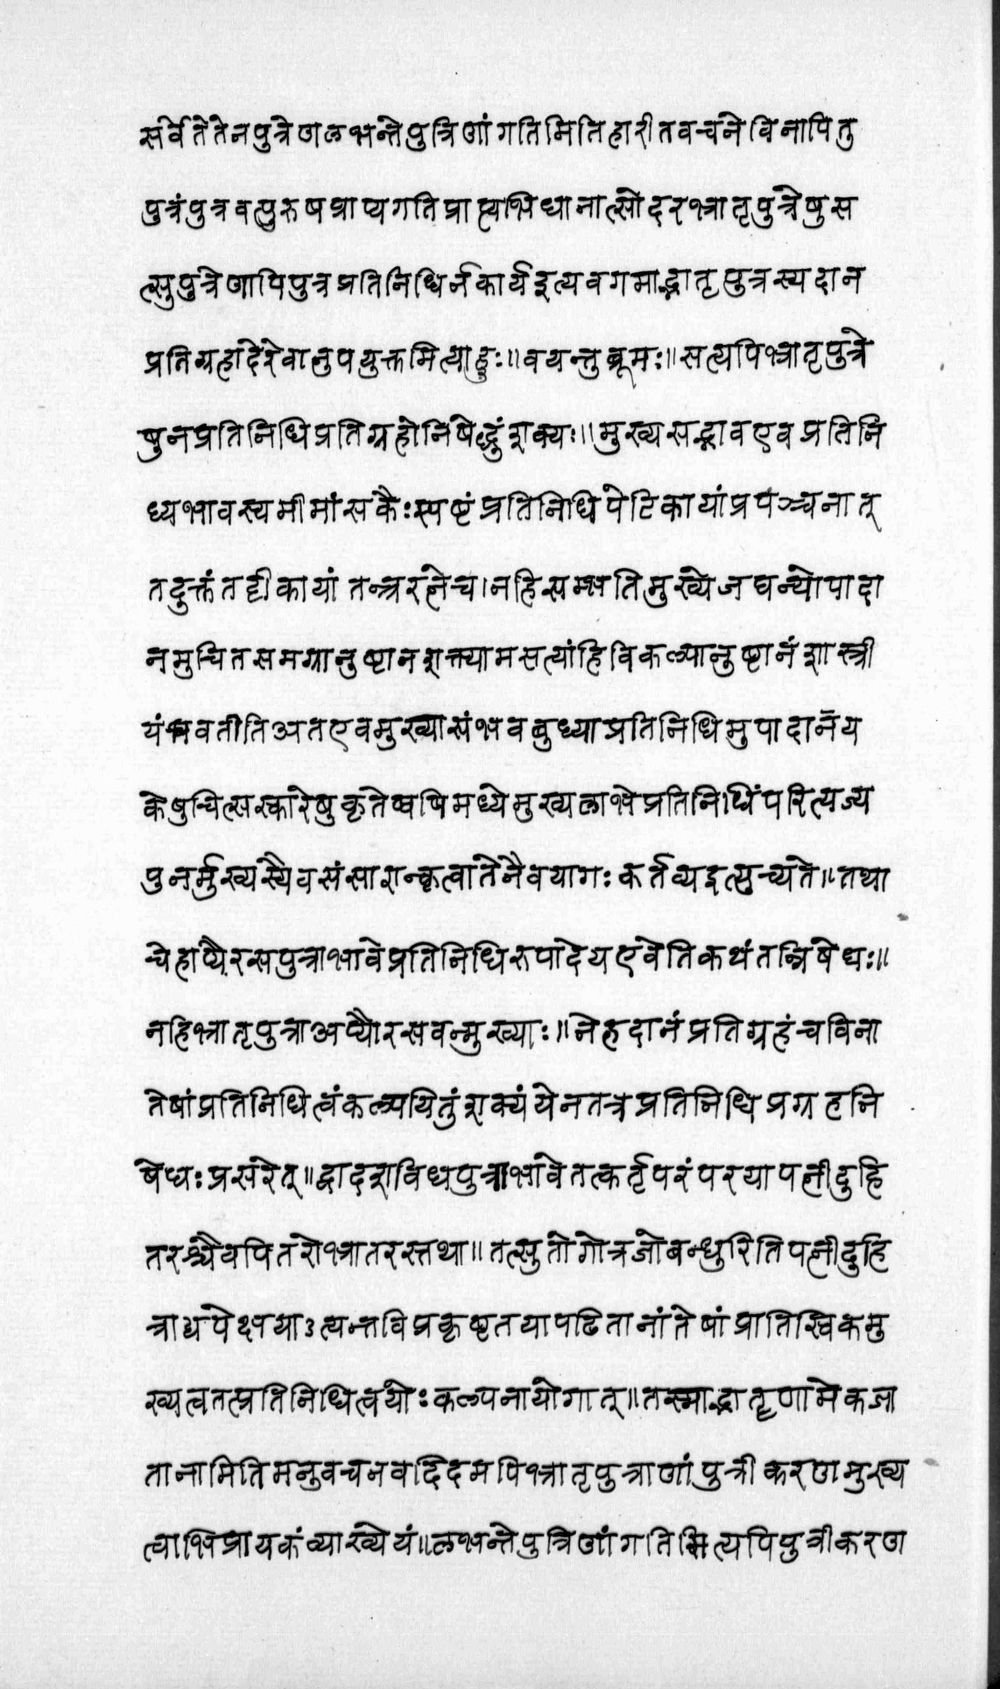 सर्वेतेतेनपुत्रेणलभन्तेपुत्रिणांगतिमितिहारीतवचनेविनापितु
पुत्रंपुत्रवत्पुरुषप्राप्यगतिप्राप्त्यभिधानात्सोदरभ्रातृपुत्रेषुस
त्सुपुत्रेणापिपुत्रप्रतिनिधिर्नकार्यइत्यवगमाद्भातृपुत्रस्यदान
प्रतिग्रहादेरेवानुपयुक्तमित्याहुः॥वयन्तुब्रूमः॥सत्यपिभ्रातृपुत्रे
षुनप्रतिनिधिप्रतिग्रहोनिषेद्धुंशक्यः॥मुख्यसद्भावएवप्रतिनि
ध्यभावस्यमीमांसकैःस्पष्टंप्रतिनिधिपेटिकायांप्रपञ्चनात्
तदुक्तंतट्टीकायां तन्त्ररत्नेच।नहिसम्भतिमुख्येजघन्योपादा
नमुचितसमग्रानुष्टानशक्त्यामसत्यांहिविकल्यानुष्टानंशास्त्री
यंभवतीतिअतएवमुख्यासंभवबुध्याप्रतिनिधिमुपादानॆय
केषुचित्सस्कारेषुकृतेष्वपिमध्येमुख्यलाभेप्रतिनिधिंपरित्यज्य
पुनर्मुख्यस्यैवसंसाशन्कृत्वातेनैवयागःकर्तव्यइत्सुच्यते॥तथा
चेहाप्यैरसपुत्राभावेप्रतिनिधिरुपादेयएवेतिकथंतन्निषेधः॥
नहिभ्रातृपुत्राअप्यौरसवन्मुख्याः॥नेहदानंप्रतिग्रहंचविना
तेषांप्रतिनिधित्वंकल्पयितुंशक्यंयेनतत्रप्रतिनिधिप्रग्रहनि
षेधःप्रसरेत्॥द्वादशविधपुत्राभावेतत्कर्तृपरंपरयापत्नीदुहि
तरश्चैवपितरोभ्रातरस्तथा॥तत्सुतोगोत्रजोबन्धुरितिपत्नीदुहि
त्राद्यपेक्षयाऽत्यन्तविप्रकृष्टतयापठितानांतेषांप्रातिस्विकमु
ख्यत्वतत्प्रतिनिधित्वयोःकल्पनायोगात्॥तस्माद्भातृणामेकजा
तानामितिमनुवचनवदिदमपिभ्रातृपुत्राणांपुत्रीकरणमुख्य
त्वाभिप्रायकंव्याख्येयं॥लभन्तेपुत्रिणांगतिमित्यपिपुत्रीकरण